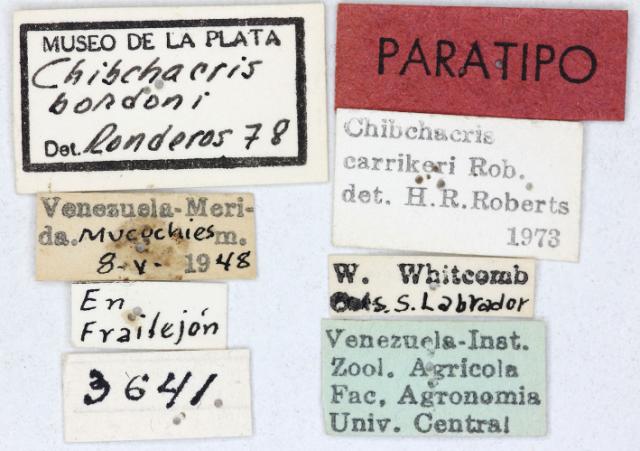 MUSEO DE LA PLATA
Chibchacris
bordoni
Det. Ronderos 78
PARATIPO
Chibchacris
carrikeri Rob.
det. H.R.Roberts
1973
Venezuela-Meri-
da. Mucuchies m.
8-V- 1948
W. Whitcomb
S. Labrador
En
Frailejón
3641
Venezuela-Inst.
Zool. Agrícola
Fac, Agronomia
Univ. Central